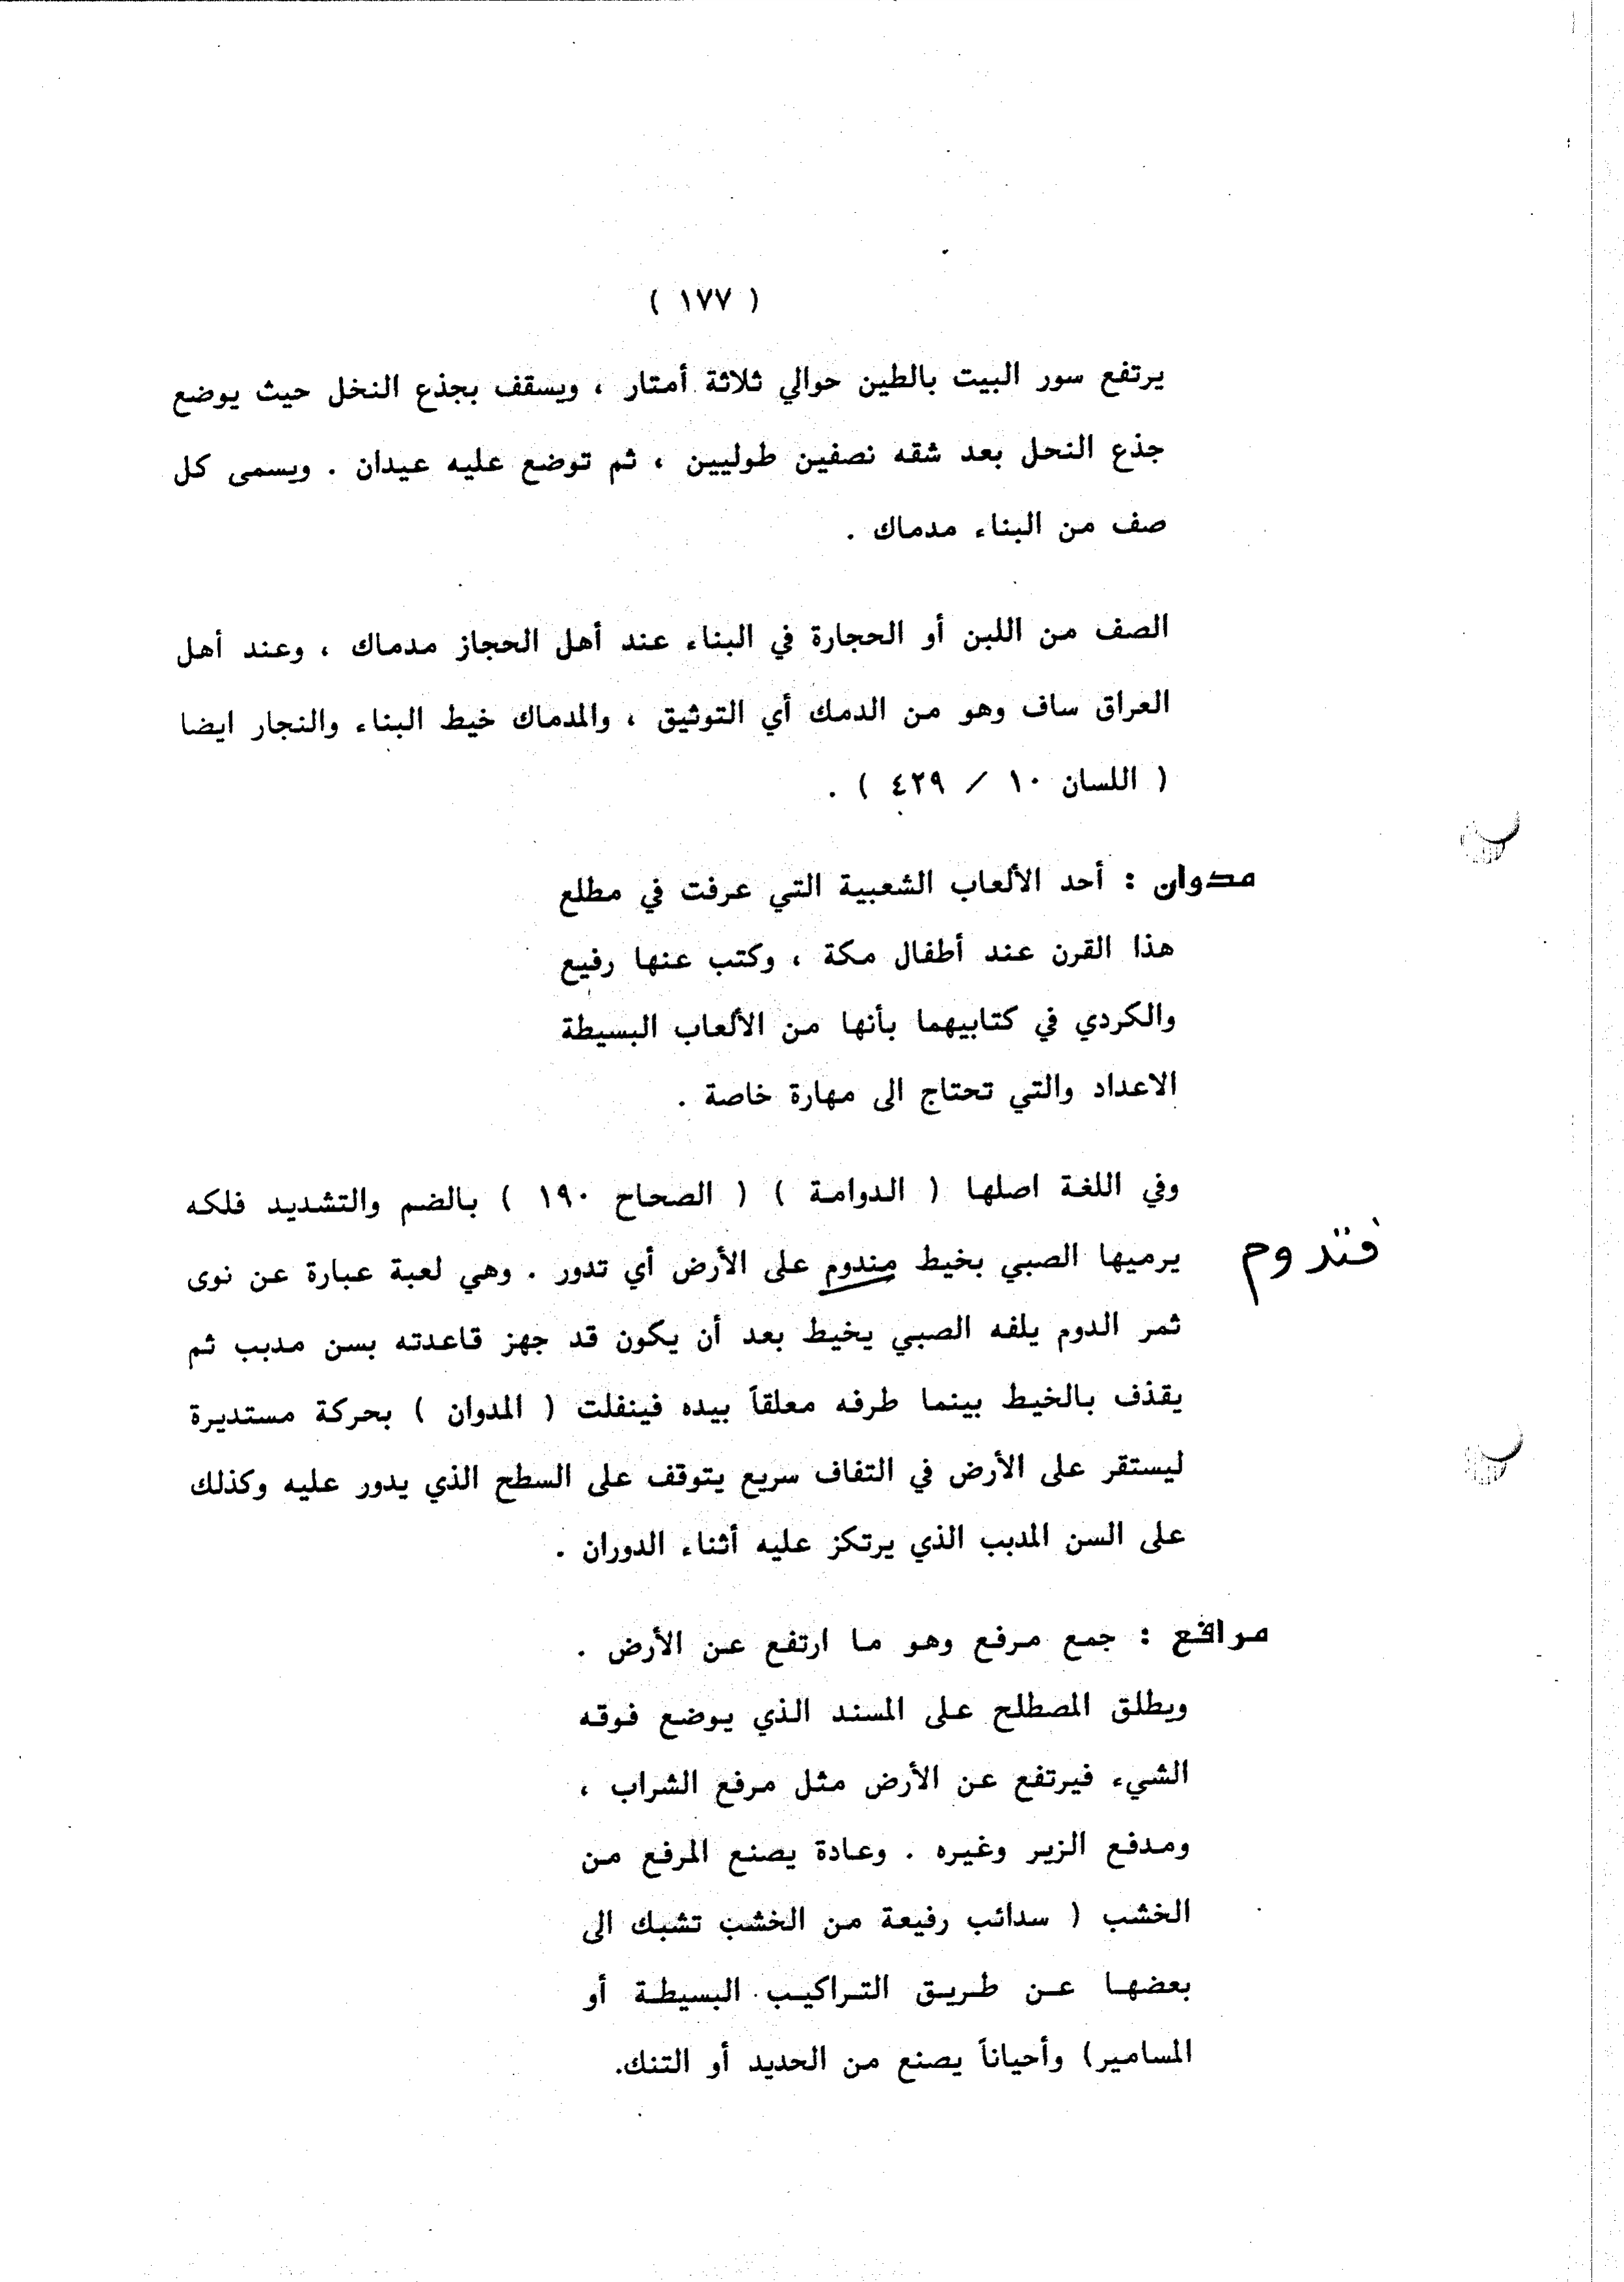 ( ١٧٧ )
يرتفع سور البيت بالطين حوالي ثلاثة أمتار ، ويسقف بجذع النخل حيث يوضع
جذع النحل بعد شقه نصفين طوليين ، ثم توضع عليه عيدان . ويسمى كل
صف من البناء مدماك .
الصف من اللبن أو الحجارة في البناء عند أهل الحجاز مدماك ، وعند أهل
العراق ساف وهو من الدمك أي التوثيق ، والمدماك خيط البناء والنجار ايضا
( اللسان ١٠ / ٤٢٩ ) .
مدوان : أحد الألعاب الشعبية التي عرفت في مطلع
هذا القرن عند أطفال مكة ، وكتب عنها رفيع
والكردي في كتابيهما بأنها من الألعاب البسيطة
الاعداد والتي تحتاج الى مهارة خاصة .
وفي اللغة اصلها ( الدوامة ) ( الصحاح ١٩٠ ) بالضم والتشديد فلكه
يرميها الصبي بخيط مندوم على الأرض أي تدور . وهي لعبة عبارة عن نوى
فتدوم
ثمر الدوم يلفه الصبي يخيط بعد أن يكون قد جهز قاعدته بسن مدبب ثم
يقذف بالخيط بينما طرفه معلقاً بيده فينفلت ( المدوان ) بحركة مستديرة
ليستقر على الأرض في التفاف سريع يتوقف على السطح الذي يدور عليه وكذلك
على السن المدبب الذي يرتكز عليه أثناء الدوران .
مرافع : جمع مرفع وهو ما ارتفع عن الأرض .
ويطلق المصطلح على المسند الذي يوضع فوقه
الشيء فيرتفع عن الأرض مثل مرفع الشراب ،
ومدفع الزير وغيره . وعادة يصنع المرفع من
الخشب ( سدائب رفيعة من الخشب تشبك الى
بعضها عن طريق التراكيب البسيطة أو
المسامير) وأحياناً يصنع من الحديد أو التنك.